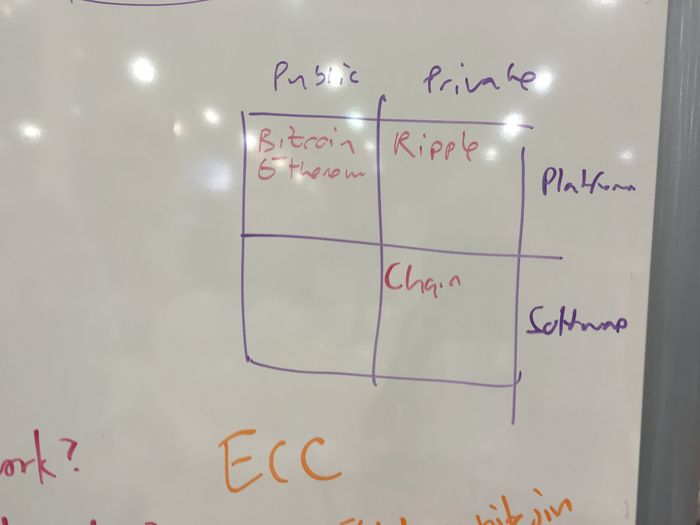 Public Private
Bitcoin Ripple
Ethereum
Platform
Chain
Software
ork?
ECC
bitcoin